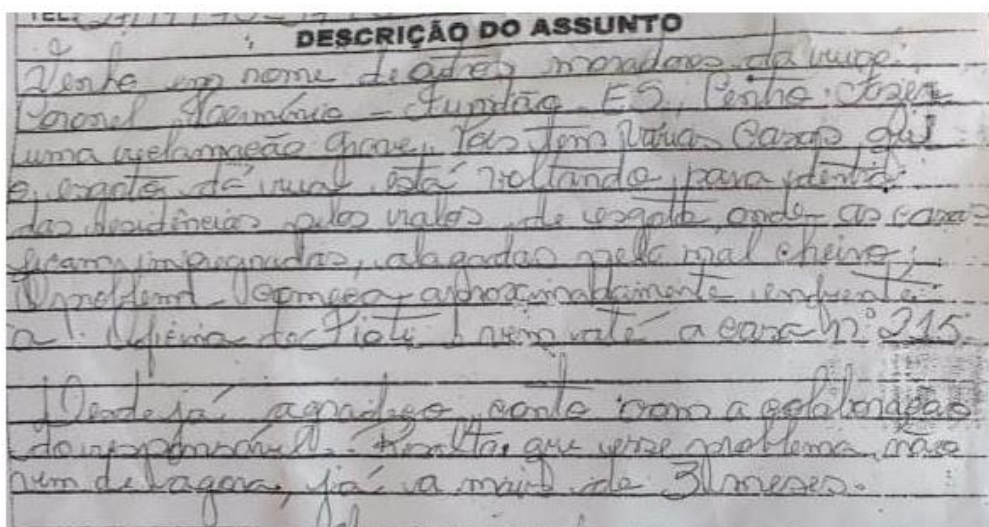 TEL:
DESCRIÇÃO DO ASSUNTO
Venho em nome de outros moradores da rua:
Coronel Hermínio - Fundão - ES, Venho fazer
uma reclamação grave, Pois tem várias Casas, que
o esgoto da rua está voltando para dentro
das residências pelos ralos de esgoto, onde as casas
ficam impregnadas, alagadas pelo mal cheiro;
O problema Começa aproximadamente enfrente
a oficina do Fioti nem até a casa nº 215.
Desde já agradeço, conto com a colaboração
do responsável. Resalto que esse problema não
vem de agora, já a mais de 3 meses.